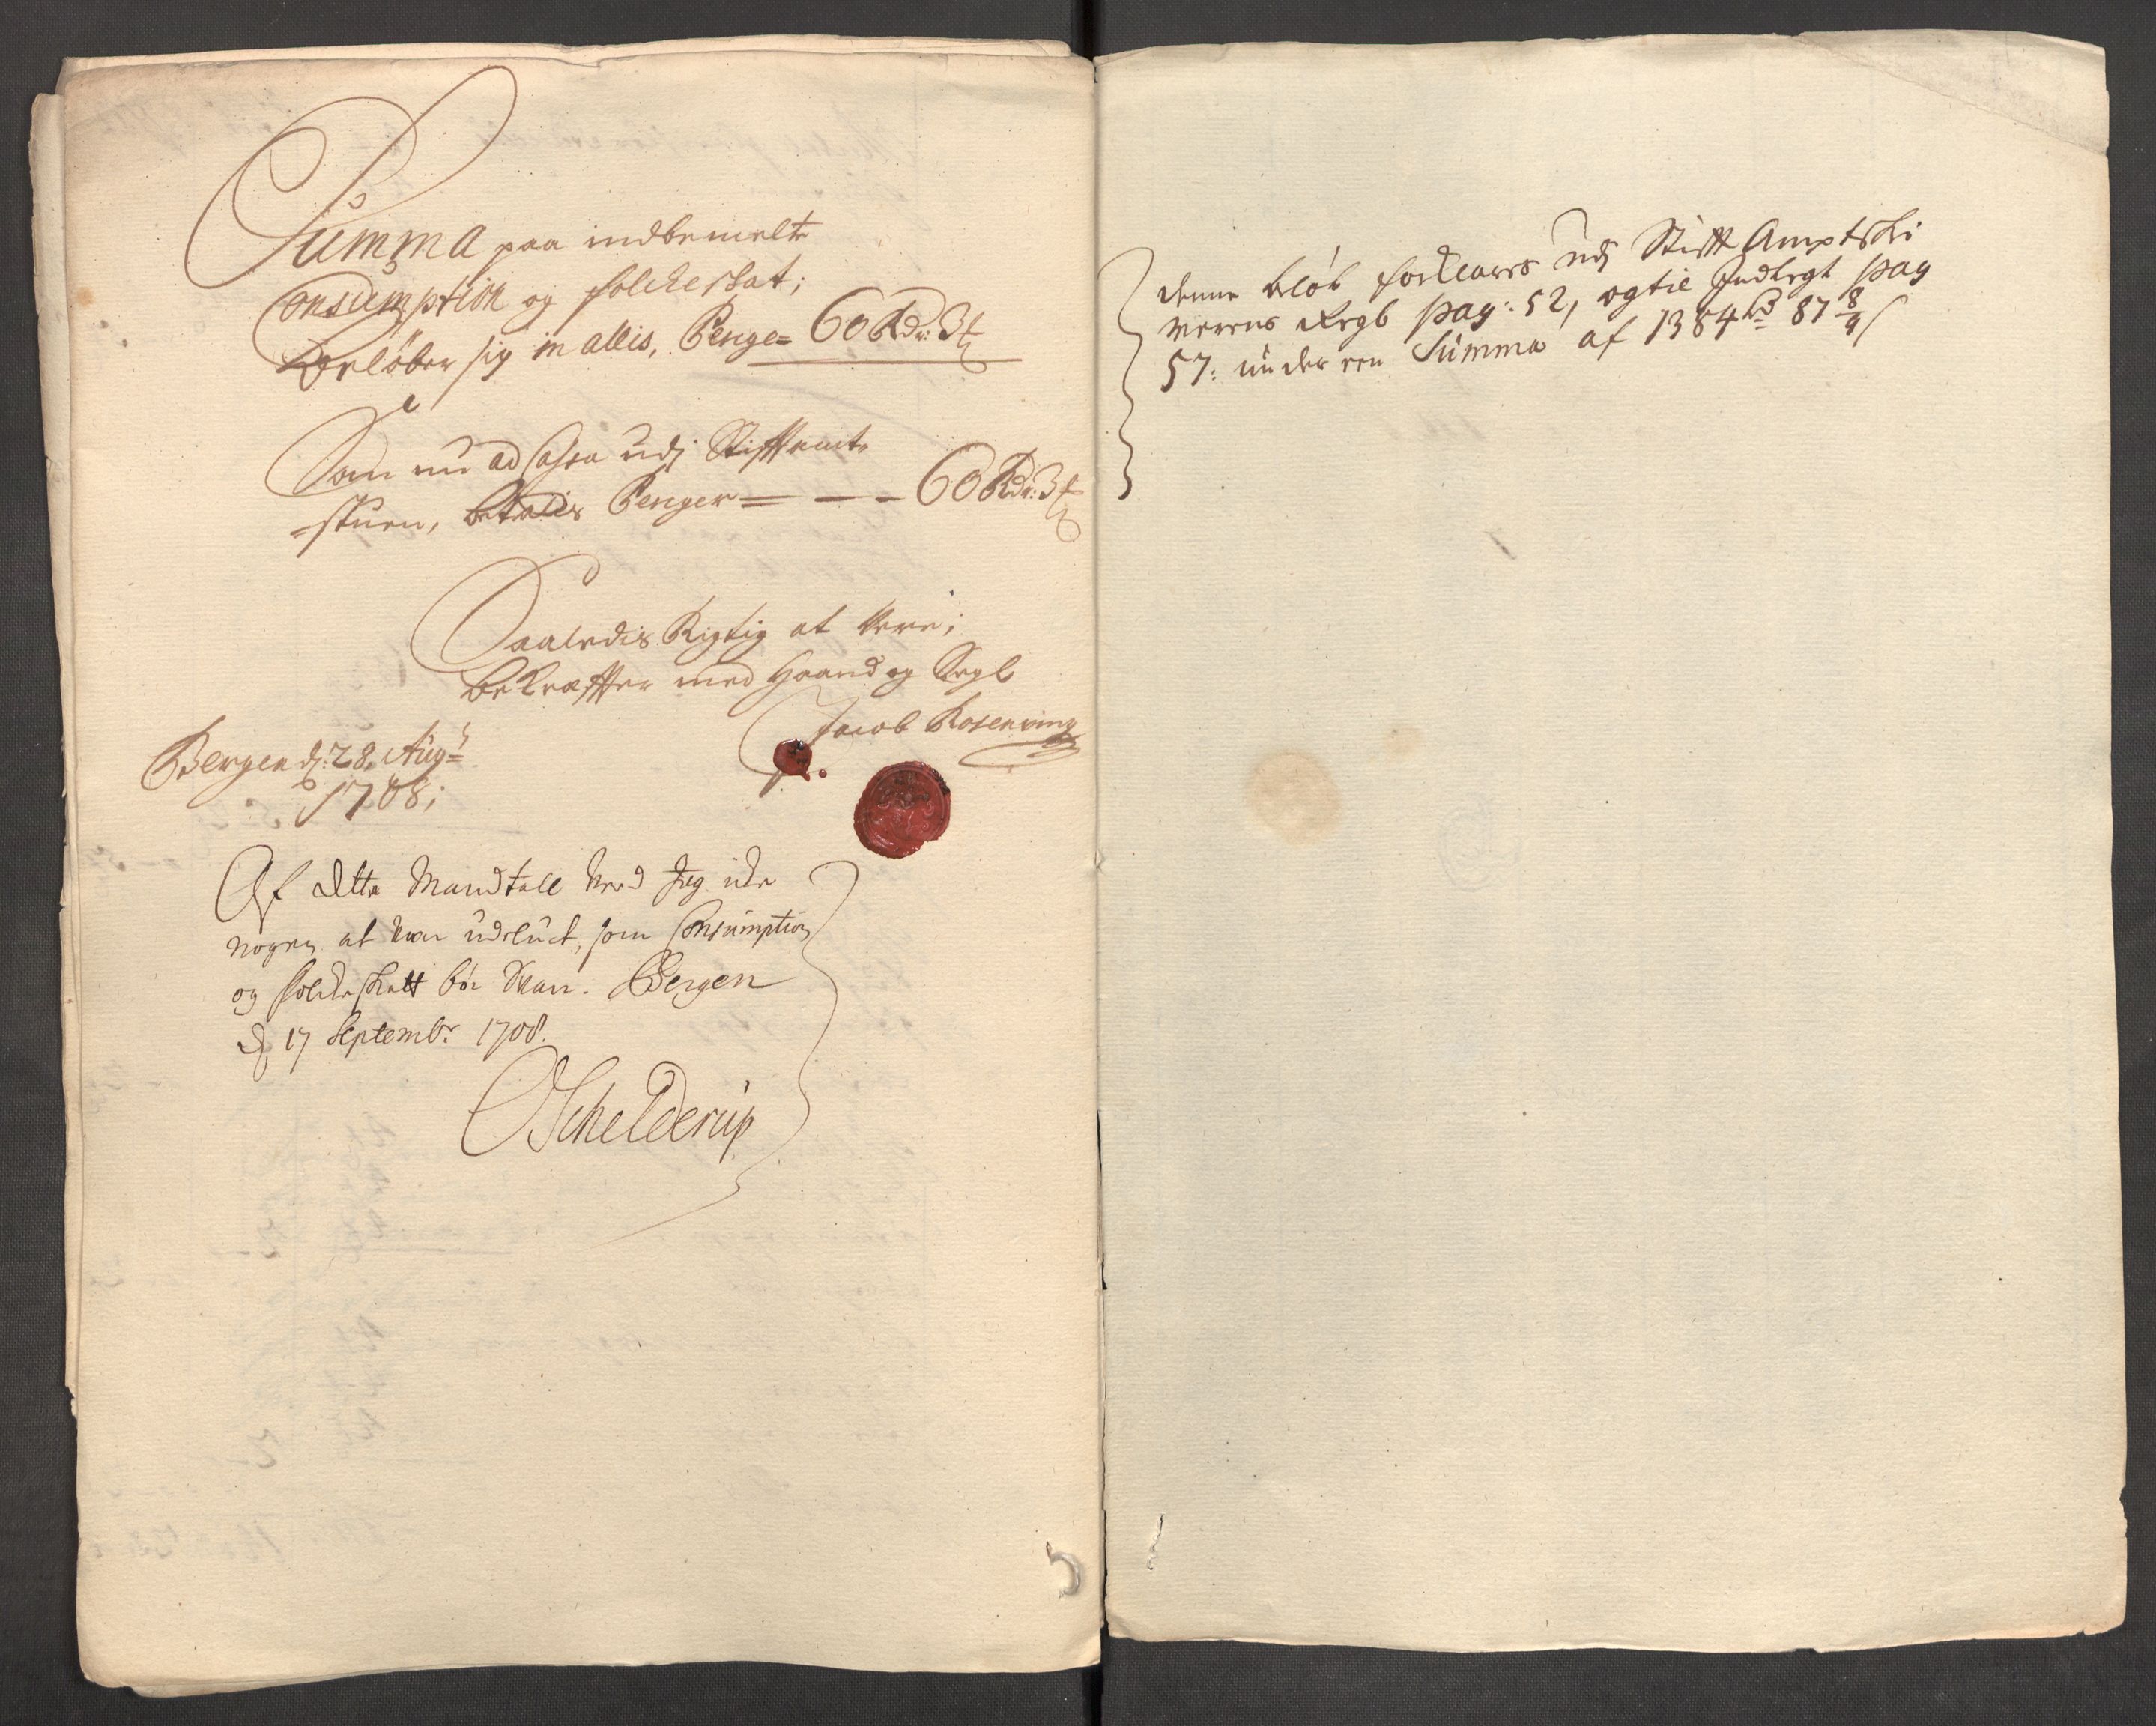 Summa paa indbemelte
Consumption og folcheskat;
Beløber sig in allis, Penge= 60 Rdr: 3 ß
Som nu ad Cassa udj Stifftamt-
=stuen, betalis Penger = — — 60 Rdr: 3 ß
Saaledis Rigtig at Vere;
Bekræffter med Haand og Segl
Jacob Rosenving
Bergen dj: 28. Aug:
1708;
Af dette Mandtall Veed Jeg icke
nogen at være udeluct, som Consumption
og folcke skatt bør svare. Bergen
dj 17 Septembr: 1708.
Schelderup
denne beløb forklares udj Stifft Amptskri
verens Regb pag: 52, og til Indtegt pag
57: under een Summa af 1384 rd 87 8/9 ß